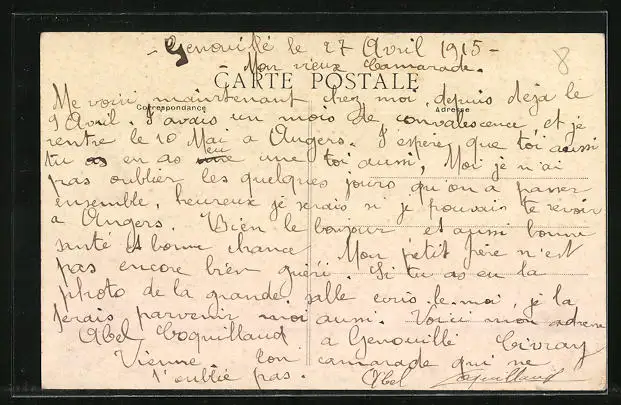 - Genouillé le 27 Avril 1915 -
8
Mon vieux Camarade.
CARTE POSTALE
Correspondance
Adresse
Me voici maintenant chez moi, depuis deja le
9 Avril. J'avais un mois de convalescence et je
rentre le 10 Mai a Angers. J'espère que toi aussi
tu as en as eu une toi aussi, Moi je n'ai
pas oublier les quelques jours qu'on a passer
ensemble, heureux je serais si je pouvais te revoir
a Angers. Bien le bonjour et aussi bonne
santé et bonne chance Mon petit frère n'est
pas encore bien guéri. Si tu as eu la
photo de la grande salle ecris-le-moi, je la
ferais parvenir moi aussi. Voici mon adresse
Abel Coquilland a Genouillé Civray
Vienne. ton camarade qui ne
t'oublie pas. Abel Coquilland